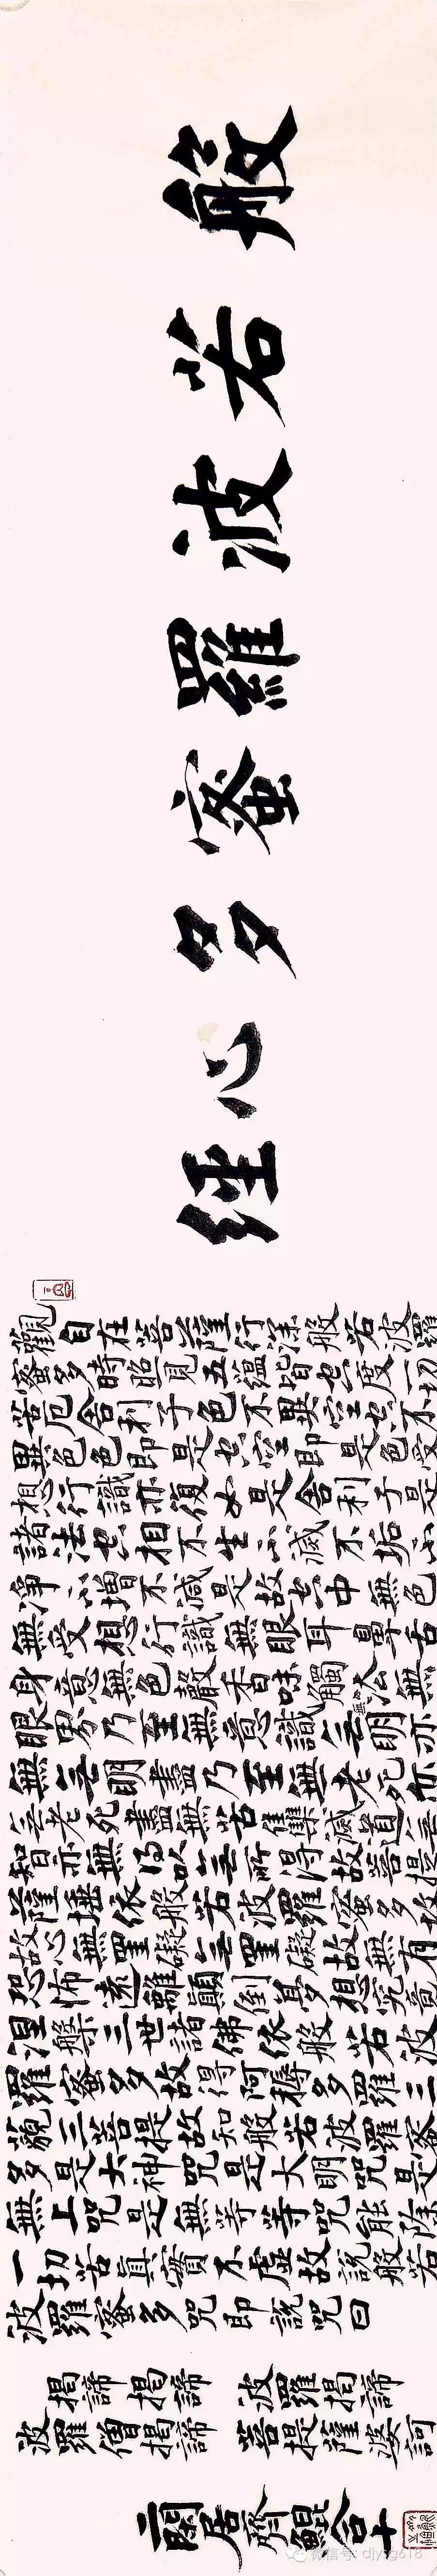 般若波羅蜜多心經
觀自在菩薩行深般若波羅
蜜多時照見五蘊皆空度一切
苦厄舍利子色不異空空不
異色色即是空空即是色受
想行識亦復如是舍利子是
諸法空相不生不滅不垢不
淨不增不減是故空中無色
無受想行識無眼耳鼻舌
身意無色聲香味觸法無
眼界乃至無意識界無无明亦
無无明盡乃至無老死亦
无老死盡無苦集滅道无
智亦無得以无所得故菩提
薩埵依般若波羅蜜多故
心無罣礙无罣礙故無有
恐怖遠離顛倒夢想究竟
涅槃三世諸佛依般若波
羅蜜多故得阿耨多羅三
藐三菩提故知般若波羅蜜
多是大神咒是大明咒是
無上咒是無等等咒能除
一切苦真實不虛故說般若
波羅蜜多咒即說咒曰
揭諦揭諦 波羅揭諦
波羅僧揭諦 菩提薩婆訶
閑居齋鯤合十
微信号: djysg618